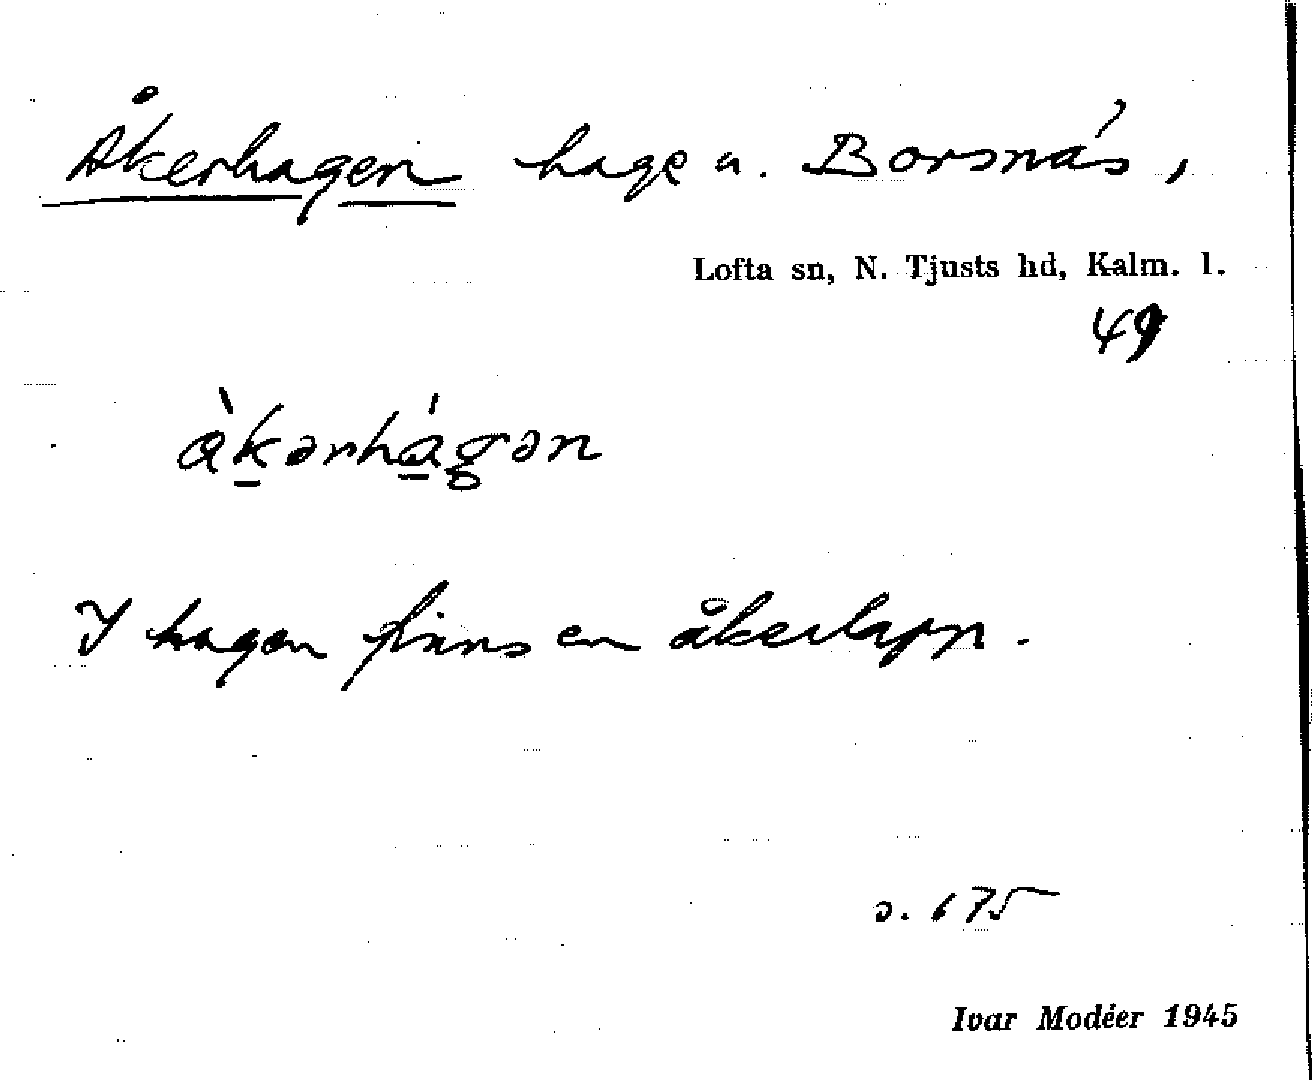 Åkerhagen hage u. Borsnäs,
Lofta sn, N. Tjusts hd, Kalm. l.
49
àkərhágən
I hagen finns en åkerlapp.
s. 675
Ivar Modéer 1945